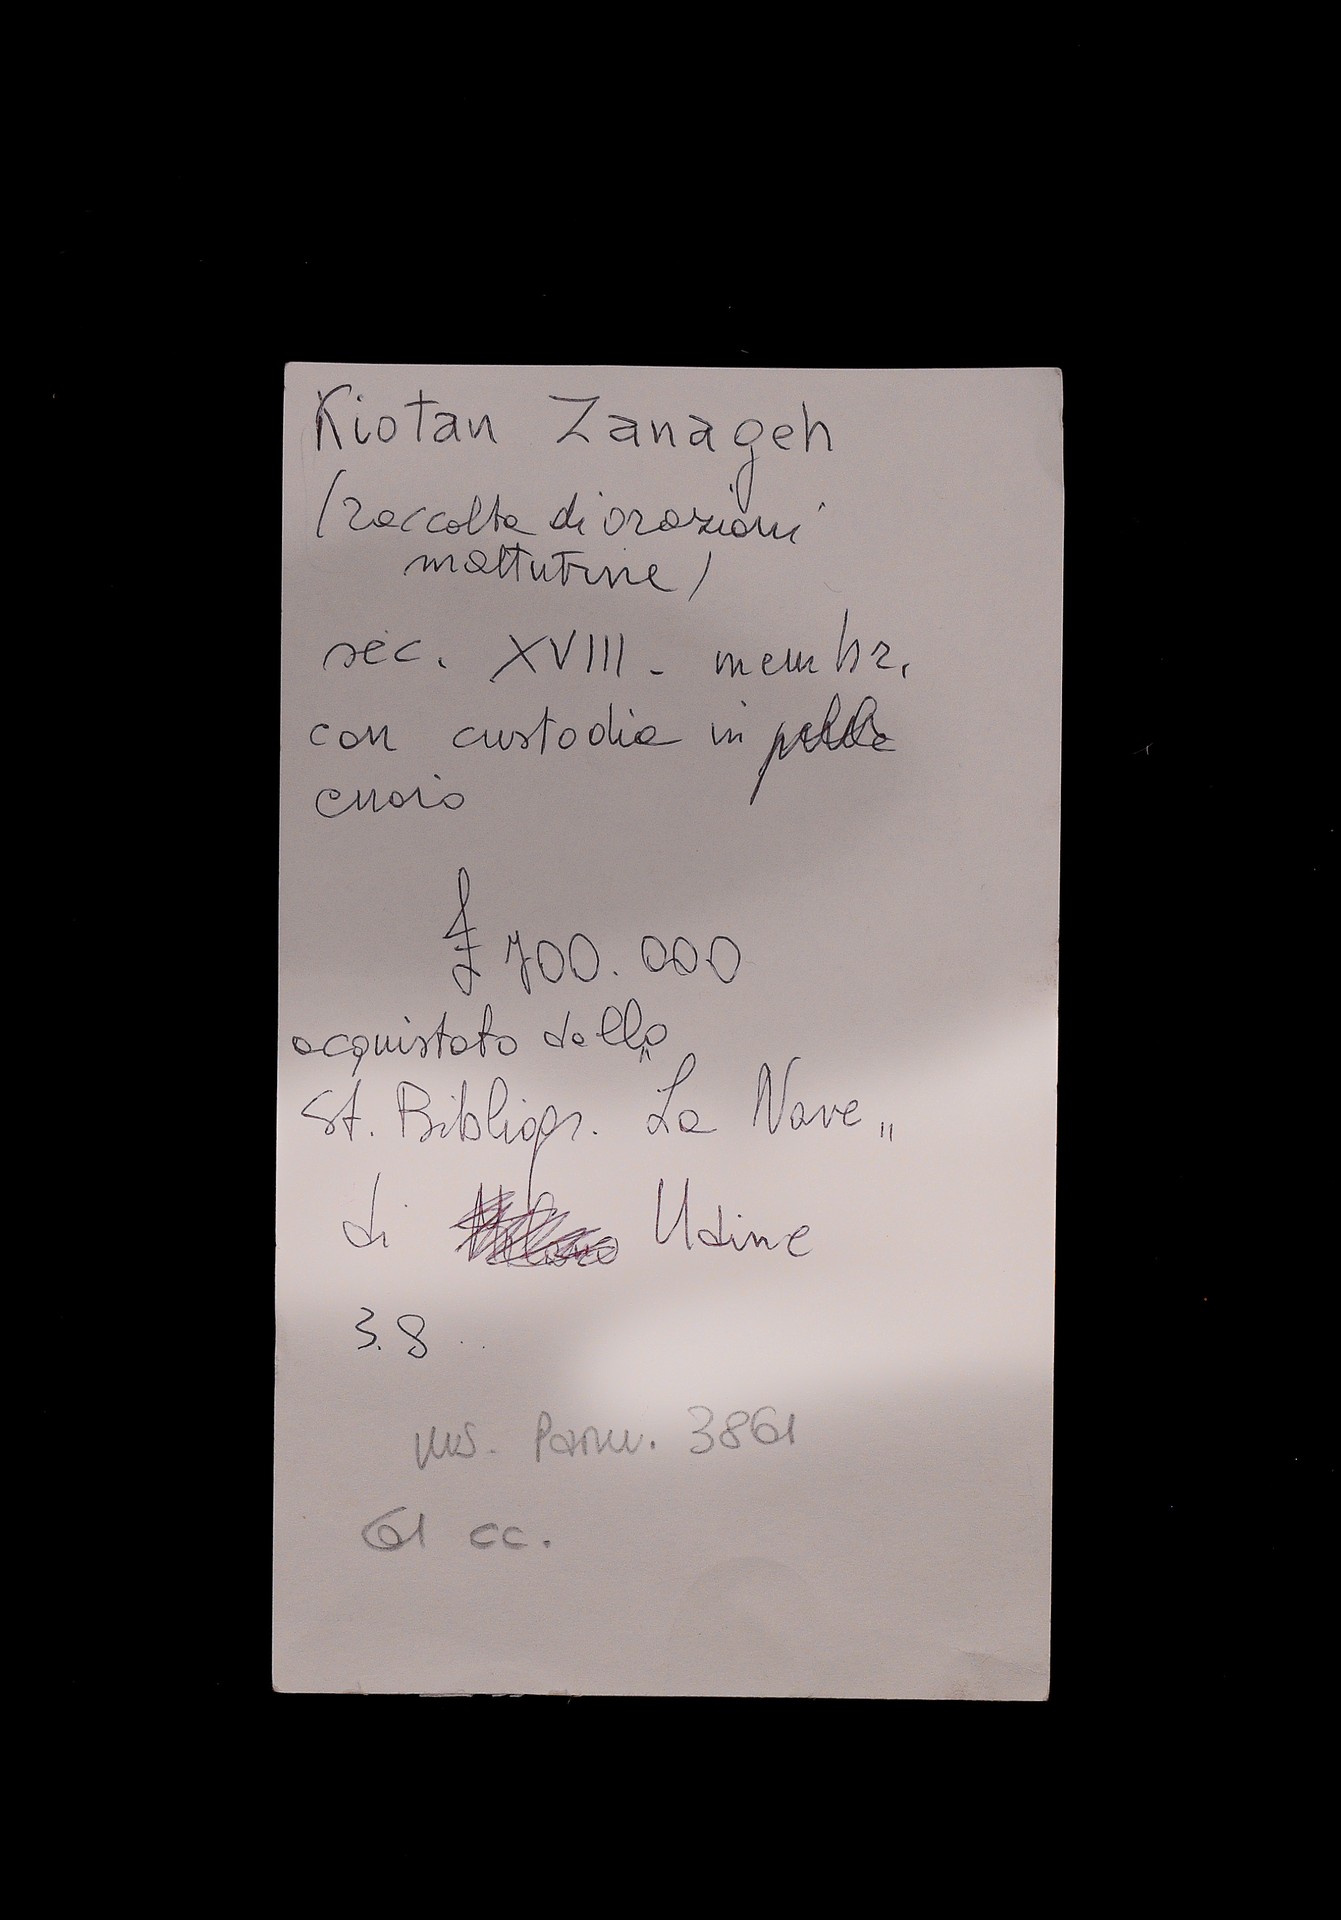 Kiotan Zanageh
(raccolta di orazioni
mattutine)
sec. XVIII - membr.
con custodia in pelle
cuoio
£ 700.000
acquistato dallo
St. Bibliogr. "La Nave"
di Milano Udine
3.8
ms. Parm. 3861
61 cc.